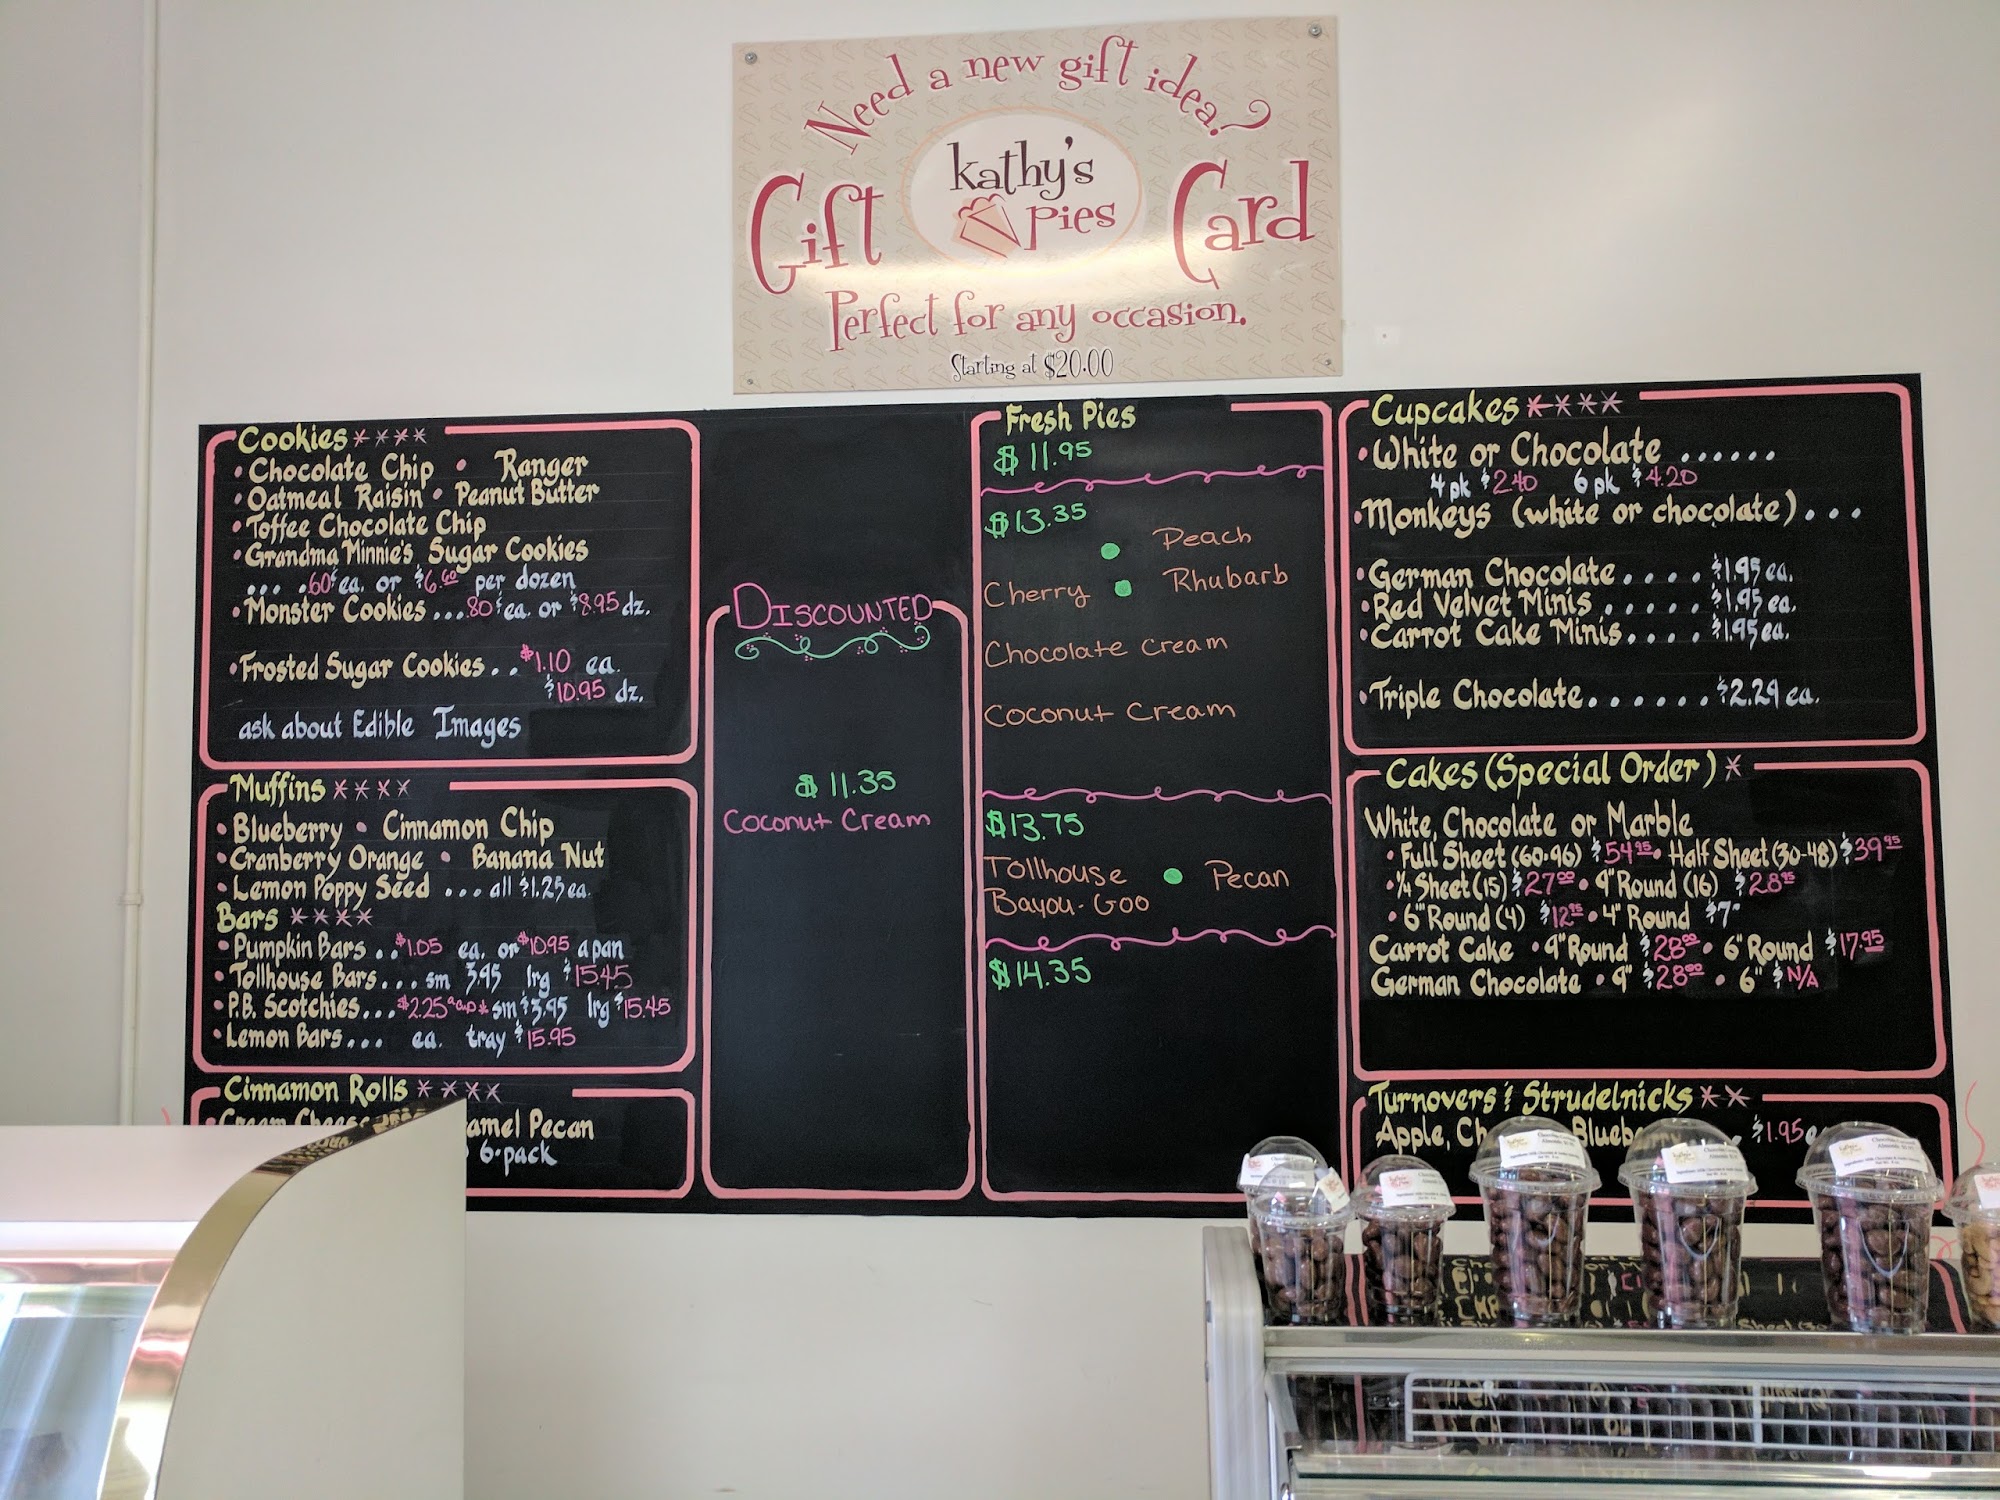 Need a new gift idea?
Gift Card
kathy's
pies
Perfect for any occasion.
Starting at $20.00
Cookies ****
• Chocolate Chip • Ranger
• Oatmeal Raisin • Peanut Butter
• Toffee Chocolate Chip
• Grandma Minnie's Sugar Cookies
... .60¢ ea. or $6.60 per dozen
• Monster Cookies ... .80¢ ea. or $8.95 dz.
• Frosted Sugar Cookies .. $1.10 ea.
$10.95 dz.
ask about Edible Images
Muffins ****
• Blueberry • Cinnamon Chip
• Cranberry Orange • Banana Nut
• Lemon Poppy Seed ... all $1.25 ea.
Bars ****
• Pumpkin Bars .. $1.05 ea. or $10.95 a pan
• Tollhouse Bars... sm 3.95 lrg $15.45
• P.B. Scotchies... $2.25 sm $3.95 lrg $15.45
• Lemon Bars... ea. tray $15.95
Cinnamon Rolls ****
• Cream Pecan
6-pack
Discounted
$11.35
Coconut Cream
Fresh Pies
$11.95
$13.35
• Peach
Cherry • Rhubarb
Chocolate Cream
Coconut Cream
$13.75
Tollhouse • Pecan
Bayou-Goo
$14.35
Cupcakes ****
• White or Chocolate ......
4 pk $2.40 6 pk $4.20
• Monkeys (white or chocolate) ...
• German Chocolate .... $1.95 ea.
• Red Velvet Minis ..... $1.95 ea.
• Carrot Cake Minis.... $1.95 ea.
• Triple Chocolate...... $2.29 ea.
Cakes (Special Order) *
White, Chocolate or Marble
• Full Sheet (60-96) $54.95 • Half Sheet (30-48) $39.95
• ¼ Sheet (15) $27.00 • 9" Round (16) $28.95
• 6" Round (4) $12.95 • 4" Round $7
Carrot Cake • 9" Round $28.00 • 6" Round $17.95
German Chocolate • 9" $28.00 • 6" $N/A
Turnovers & Strudelnicks **
Apple, $1.95